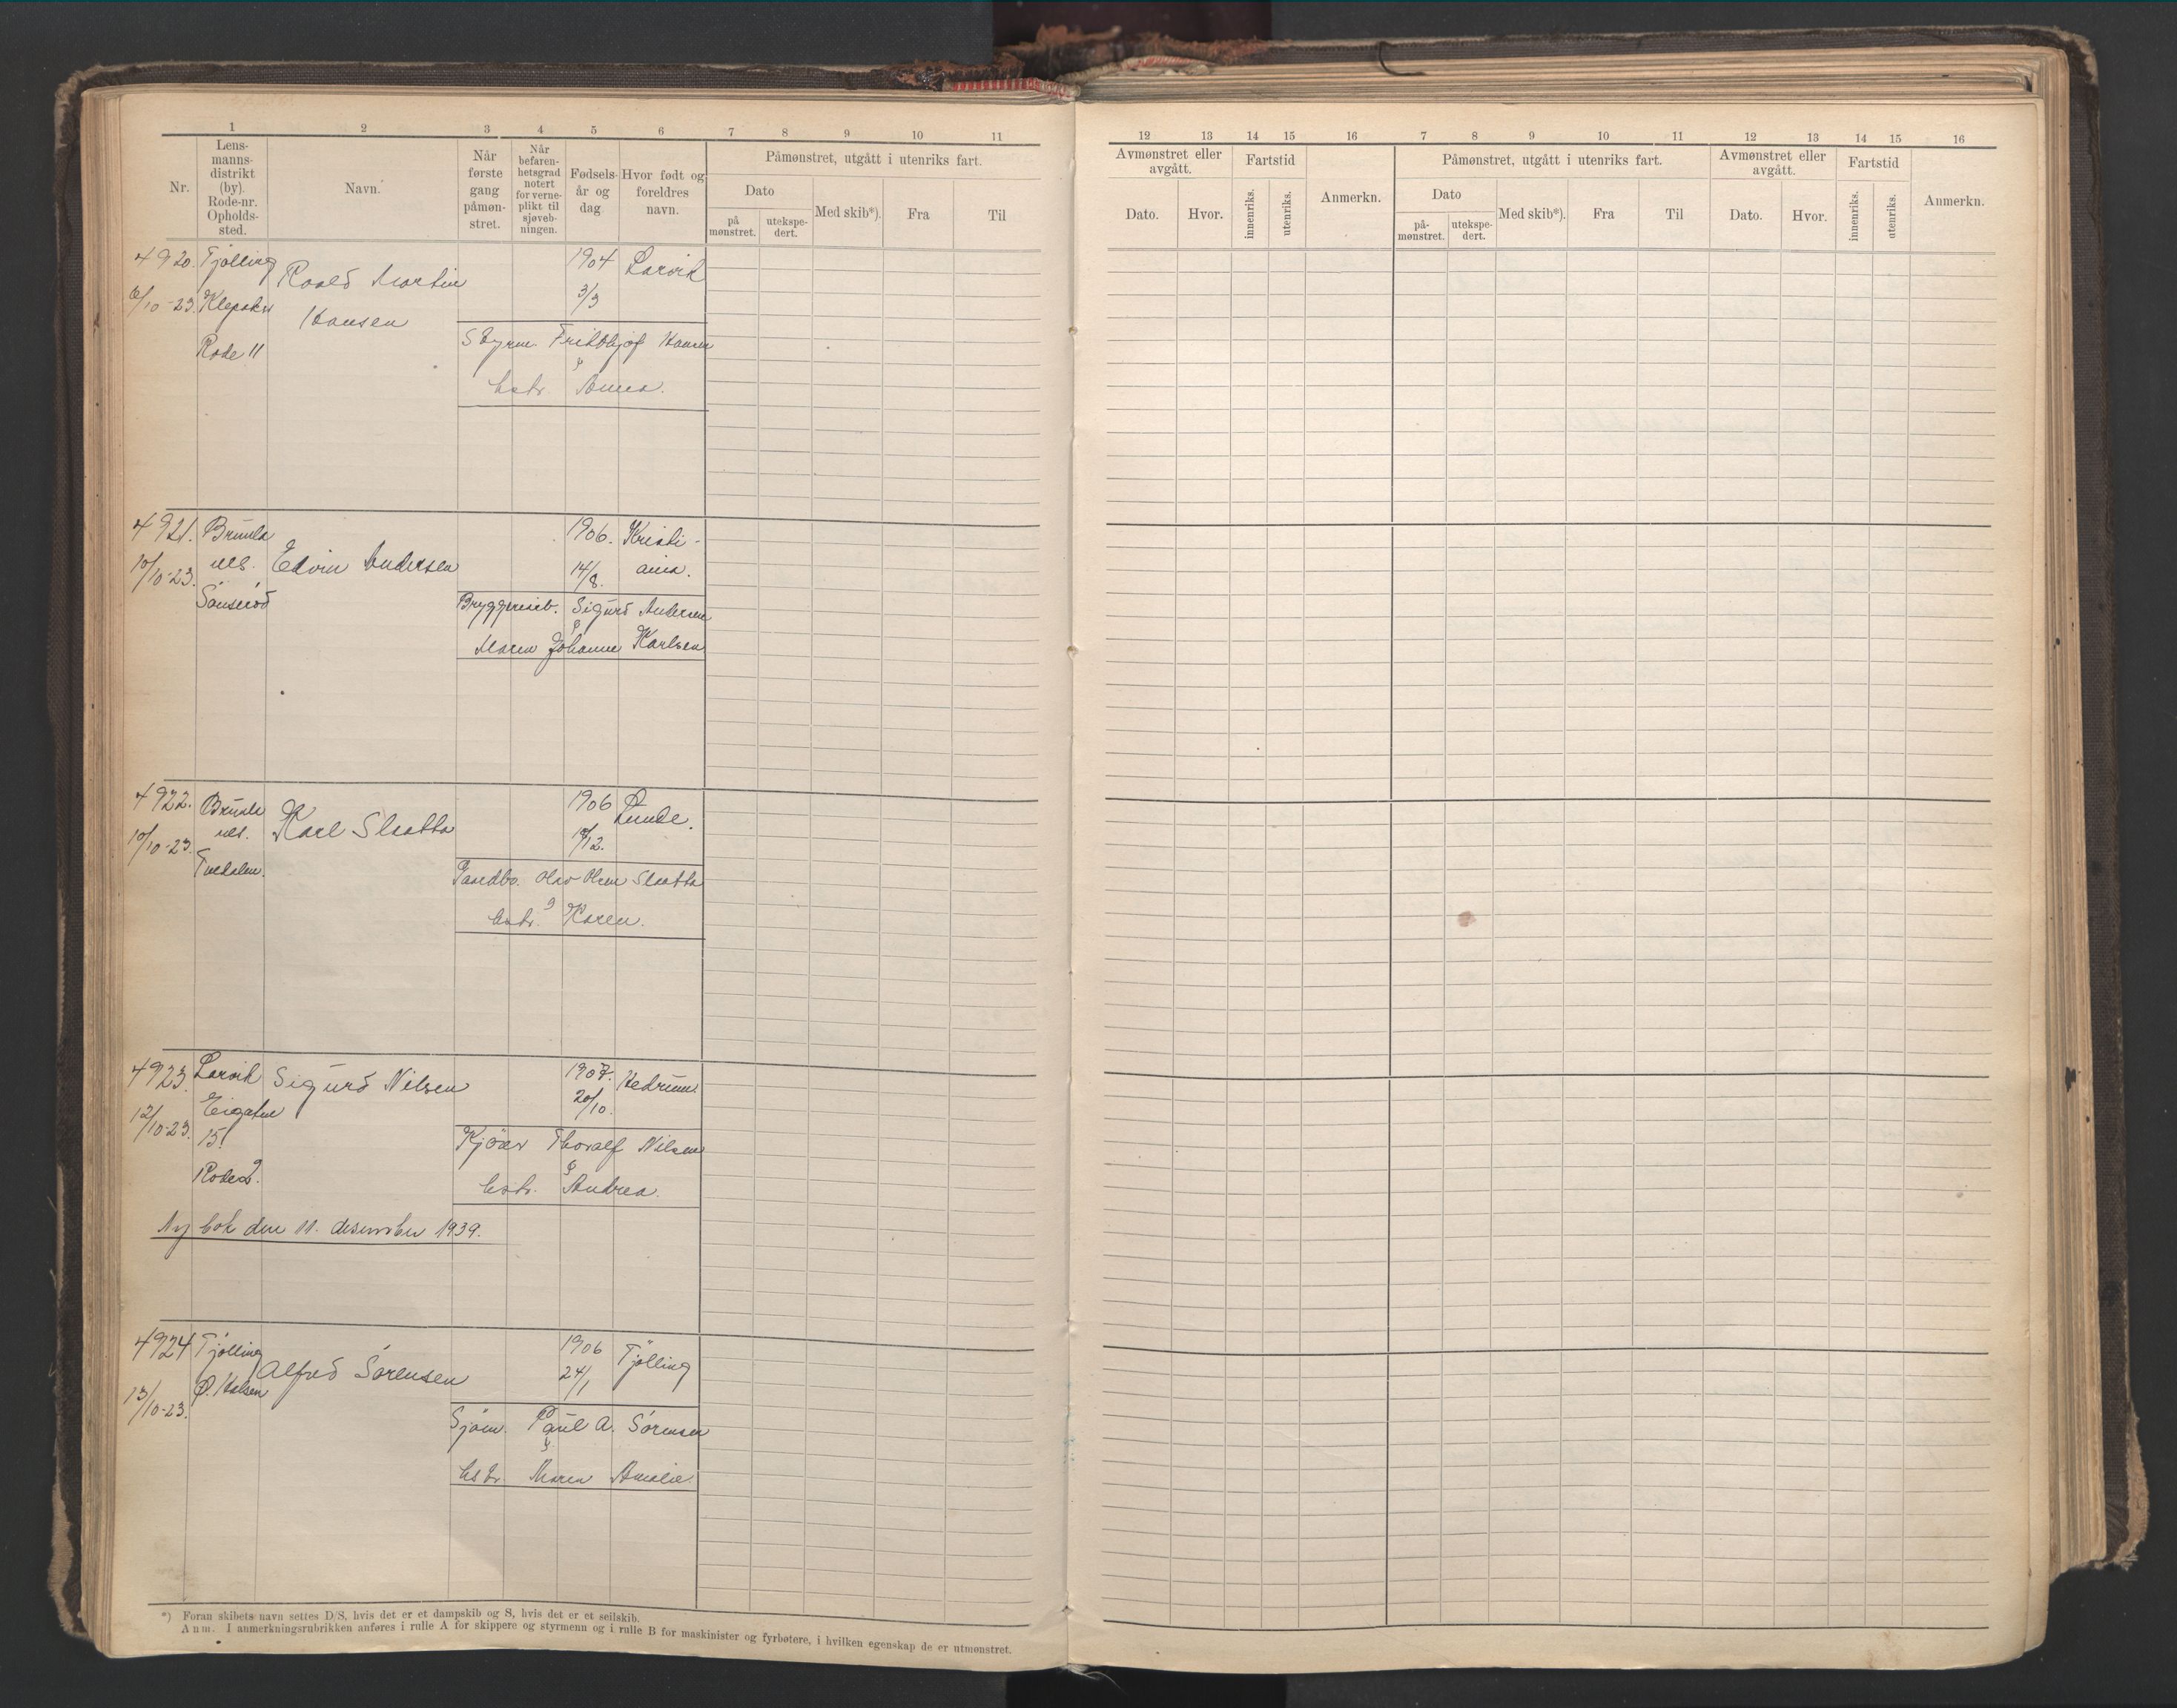 1 2 3 4 5 6 7 8 9 10 11
Nr.
Lens-
manns-
distrikt
(by).
Rode-nr.
Opholds-
sted.
Navn.
Når
første
gang
påmøn-
stret.
Når
befaren-
hetsgrad
notert
for verne-
plikt til
sjøveb-
ningen.
Fødsels-
år og
dag
Hvor født og
foreldres
navn.
Påmønstret, utgått i utenriks fart.
Dato
på
mønstret.
utekspe-
dert.
Med skib*).
Fra
Til
4920. Tjölling
Roald Martin
1904 Larvik
6/10-23. Klepaker
Hansen
3/3
Rode 11
Styrm. Fridthjof Hansen
&
hstr. Anna.
4921. Brunla
nes.
Edvin Andersen
1906. Kristi-
ania.
10/10-23.
14/8.
Bryggeriarb. Sigurd Andersen
&
Maren Johanne Karlsen
4922. Brunla
nes.
Karl Slaatta
1906 Lunde.
10/10-23.
Tvedalen.
Gaardbr. Olav Olsen Slaatta
&
hstr. Karen.
4923. Larvik
Sigurd Nilsen
1907. Hedrum
12/10-23.
15!
20/10.
Rode 2.
Thoralf Nilsen
&
hstr. Andrea.
Ny bok den 11. desember 1939.
4924 Tjölling
Alfred Sörensen
1906 Tjölling
13/10-23.
Ö. Halsen
24/1
Sjöm. Paul A. Sörensen
&
hstr. Maren Amalie.
*) Foran skibets navn settes D/S, hvis det er et dampskib og S, hvis det er et seilskib.
Anm. I anmerkningsrubrikken anføres i rulle A for skippere og styrmenn og i rulle B for maskinister og fyrbøtere, i hvilken egenskap de er utmønstret.
12 13 14 15 16 7 8 9 10 11 12 13 14 15 16
Avmønstret eller
avgått.
Dato.
Hvor.
Fartstid
innenriks.
utenriks.
Anmerkn.
Påmønstret, utgått i utenriks fart.
Dato
på-
mønstret.
utekspe-
dert.
Med skib*).
Fra
Til
Avmønstret eller
avgått.
Dato.
Hvor.
Fartstid
innenriks.
utenriks.
Anmerkn.